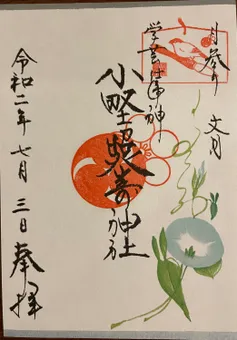 月参り 文月
学業
小野照崎神社
令和二年七月三日奉拝